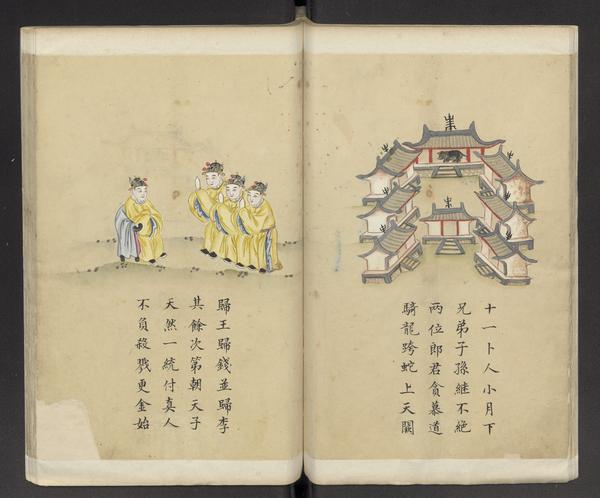 十一卜人小月下
兄弟子孫継不絶
两位郎君貪慕道
騎龍跨蛇上天闕
歸王歸錢並歸李
其餘次第朝天子
天然一統付真人
不負殺戮更金始